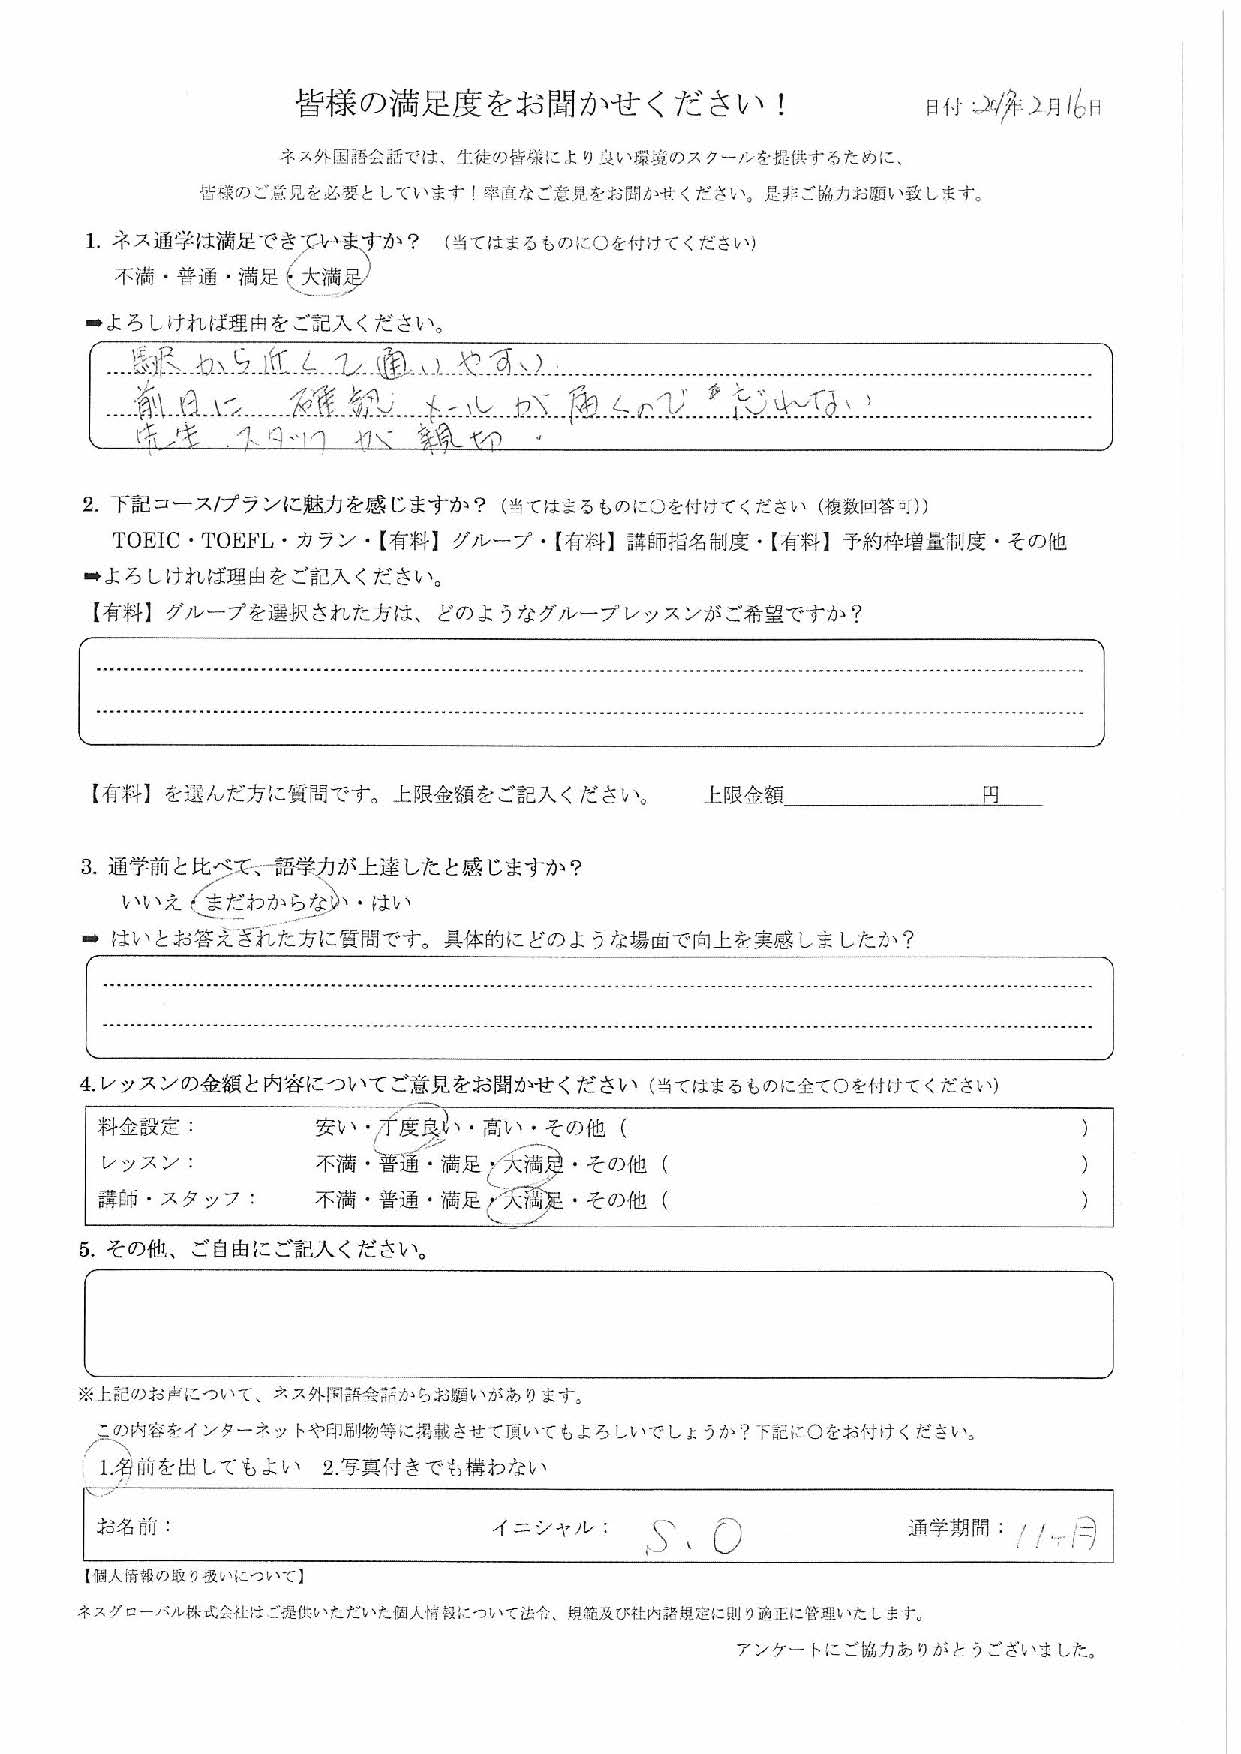 皆様の満足度をお聞かせください！
日付：年2月16日
ネス外国語会話では、生徒の皆様により良い環境のスクールを提供するために、
皆様のご意見を必要としています！率直なご意見をお聞かせください。是非ご協力お願い致します。
1. ネス通学は満足できていますか？（当てはまるものに〇を付けてください）
不満・普通・満足・大満足
➡よろしければ理由をご記入ください。
駅から近くて通いやすい
前日に 確認メールが届くので忘れない
先生、スタッフが親切.
2. 下記コース/プランに魅力を感じますか？（当てはまるものに〇を付けてください（複数回答可））
TOEIC・TOEFL・カラン・【有料】グループ・【有料】講師指名制度・【有料】予約枠増量制度・その他
➡よろしければ理由をご記入ください。
【有料】グループを選択された方は、どのようなグループレッスンがご希望ですか？
【有料】を選んだ方に質問です。上限金額をご記入ください。 上限金額 円
3. 通学前と比べて、語学力が上達したと感じますか？
いいえ・まだわからない・はい
➡ はいとお答えされた方に質問です。具体的にどのような場面で向上を実感しましたか？
4.レッスンの金額と内容についてご意見をお聞かせください（当てはまるものに全て〇を付けてください）
料金設定： 安い・丁度良い・高い・その他（ ）
レッスン： 不満・普通・満足・大満足・その他（ ）
講師・スタッフ： 不満・普通・満足・大満足・その他（ ）
5. その他、ご自由にご記入ください。
※上記のお声について、ネス外国語会話からお願いがあります。
この内容をインターネットや印刷物等に掲載させて頂いてもよろしいでしょうか？下記に〇をお付けください。
1.名前を出してもよい 2.写真付きでも構わない
お名前： イニシャル： S.O 通学期間：11ヶ月
【個人情報の取り扱いについて】
ネスグローバル株式会社はご提供いただいた個人情報について法令、規範及び社内諸規定に則り適正に管理いたします。
アンケートにご協力ありがとうございました。